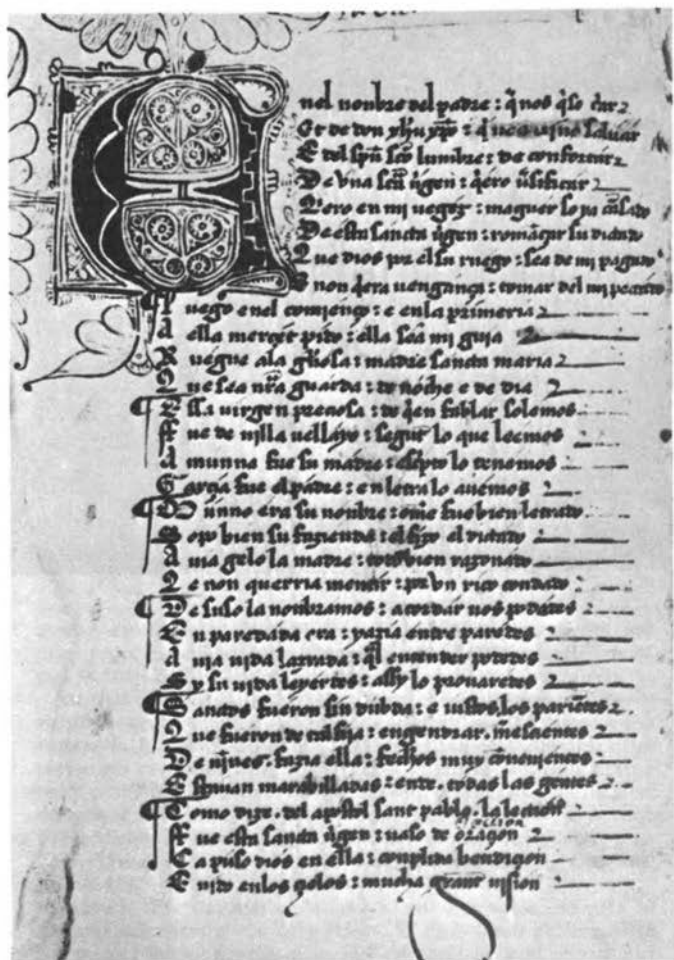 E nel nonbre del padre : q̃ nos q̃so c̃ar
Et de don yhũ xp̃o : q̃ nos uino saluar
E del sp̃u sc̃o lumbre : de confortar
De vna sc̃a ũgen : q̃ero ũsificar
Quero en mi uegez : maguer so ya cãsado
De esta sancta ũgen : romãçar su dictado
Que dios por el su ruego : sea de mi pagado
E non q̃era uengança : tomar del mi pecado
Luego enel comienço : e enla primeria
a ella merçet pido : ella sea mi guia
Ruegue ala gl̃iosa : madre sancta maria
Que sea nr̃a guarda : de noche e de dia
Essa virgen preciosa : de q̃en fablar solemos
Fue de uilla uellayo : segur lo que leemos
amunna fue su madre : esc̃pto lo tenemos
Garçia fue el padre : en letra lo auemos
Munno era su nonbre : om̃e fue bien letrado
Sopo bien su fazienda : el fizo el dictado
auia gelo la madre : todo bien razonado
Que non querria mentir : por vn rico condado
De suso la nonbramos : acordar uos podedes
Enparedada era : yazia entre paredes
auia uida lazrada : q̃l entender podedes
Sy su uida leyerdes : assy lo prouaredes
Sanctos fueron sin dubda : e iustos los pariẽtes
Que fueron de tal fija : engendrar . m̃esçientes
De nĩnes . fazia ella : fechos muy cõuenientes
Estauan marabilladas : ent̃e . todas las gentes
Como dize . del apostol sant pablo . la lection
Fue esta sancta ũgen : uaso de oraçion
Ca puso dios en ella : conplida bendiçion
E uido enlos çielos : mucha grant uision